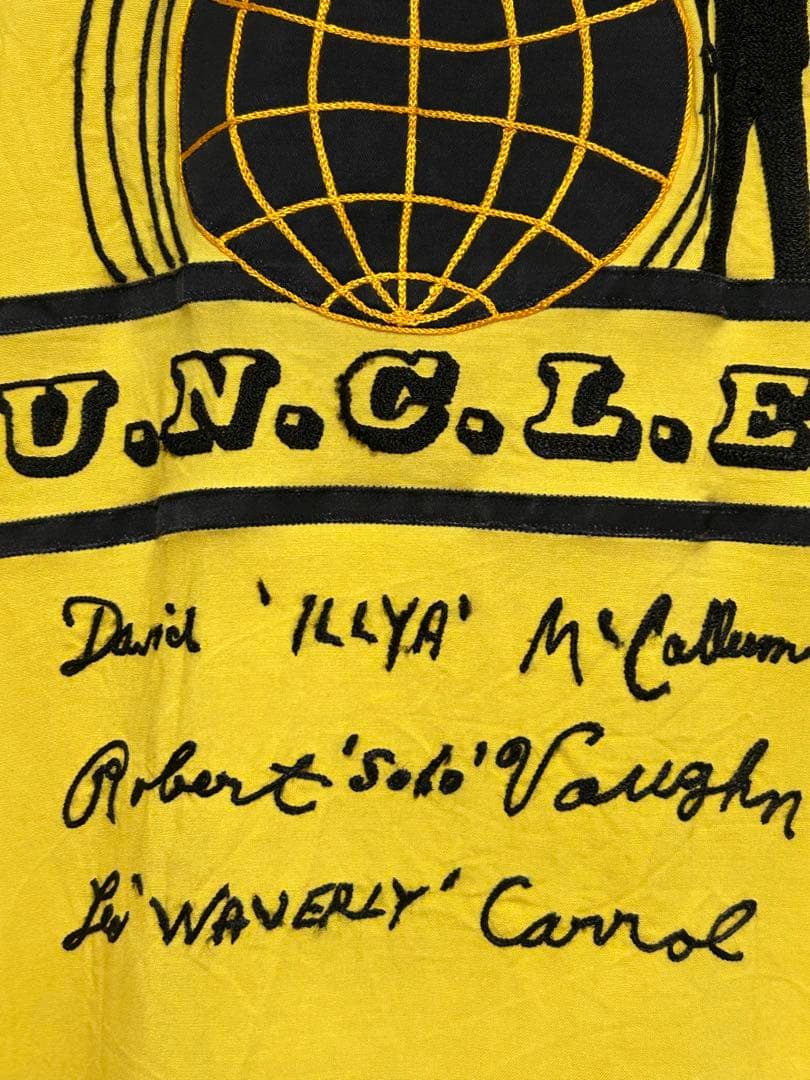 U.N.C.L.E
David 'ILLYA' McCallum
Robert 'Solo' Vaughn
Leo 'WAVERLY' Carrol